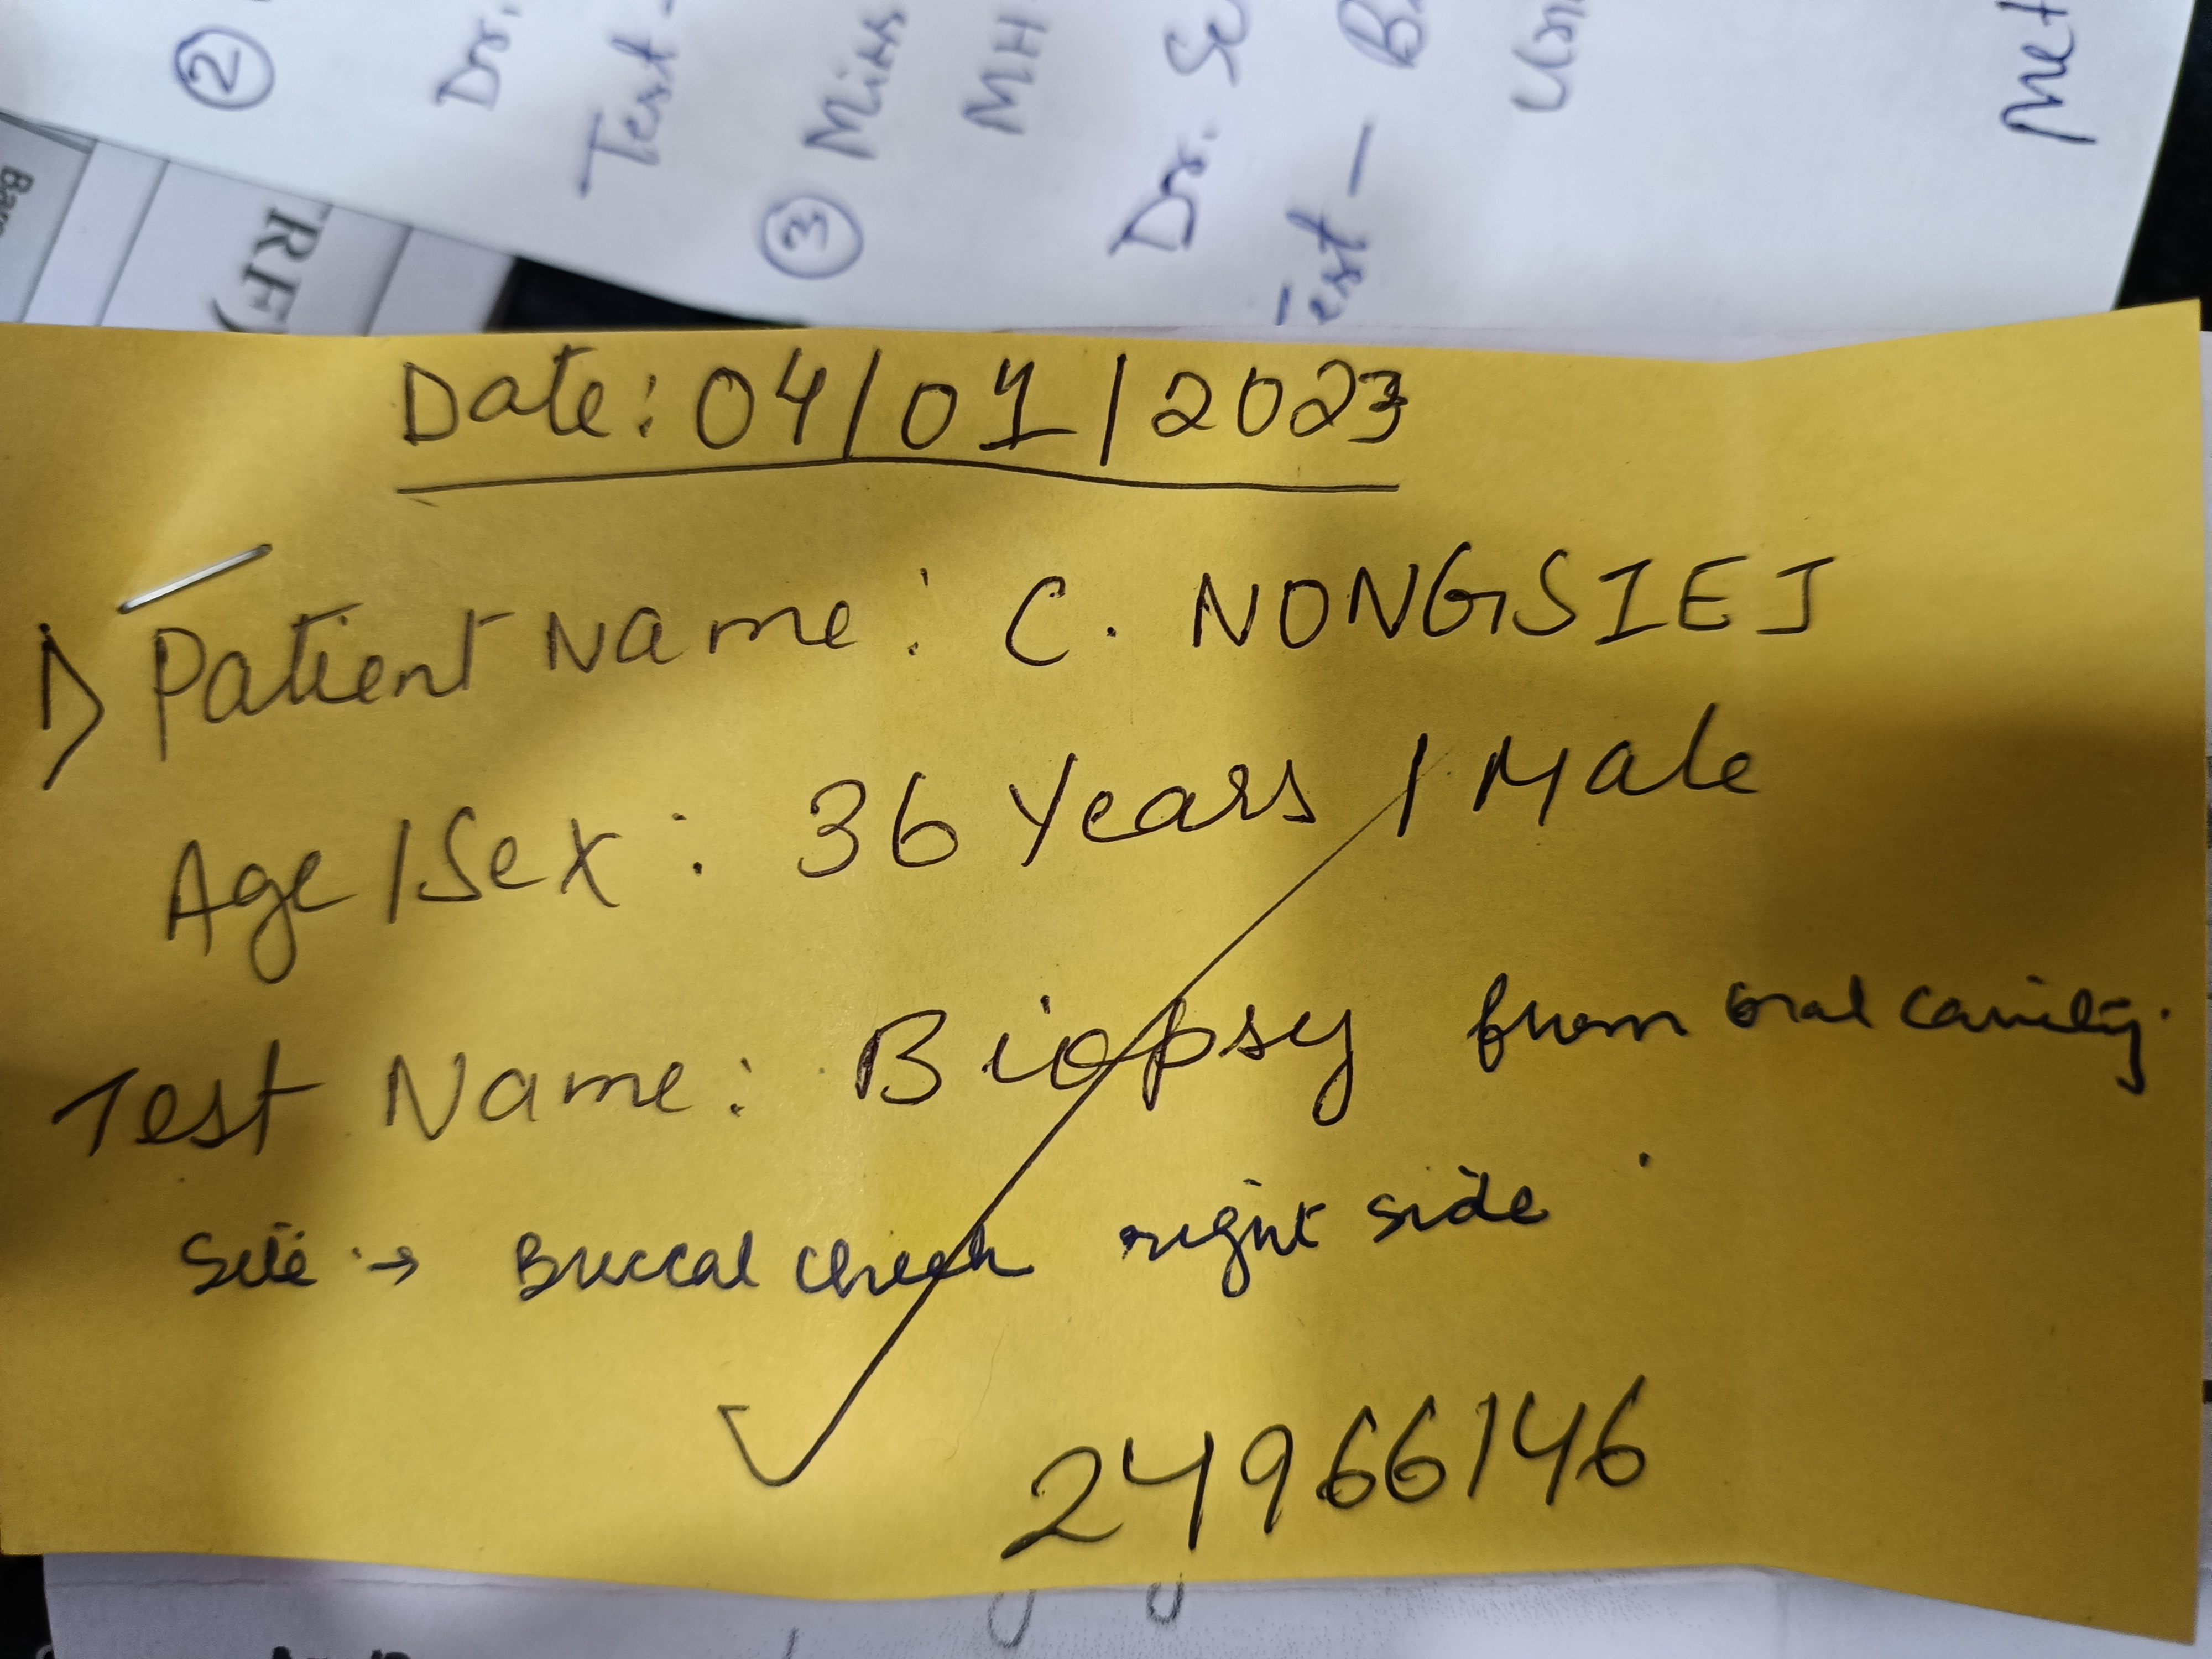 ②
Dr.
Test -
③ Miss
MH
Dr. Se
Test - B
Uri
Met
TRF)
Date: 04/01/2023
1) Patient Name: C. NONGSIEJ
Age/Sex: 36 Years / Male
Test Name: Biopsy from oral cavity.
Site → Buccal cheek right side
24966146